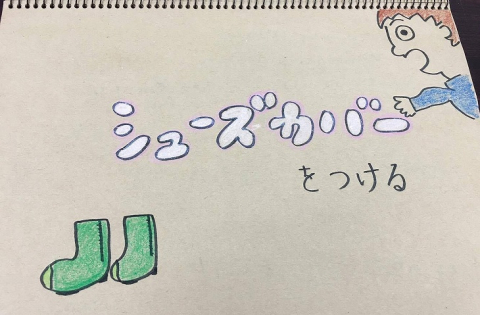 シューズカバー
をつける